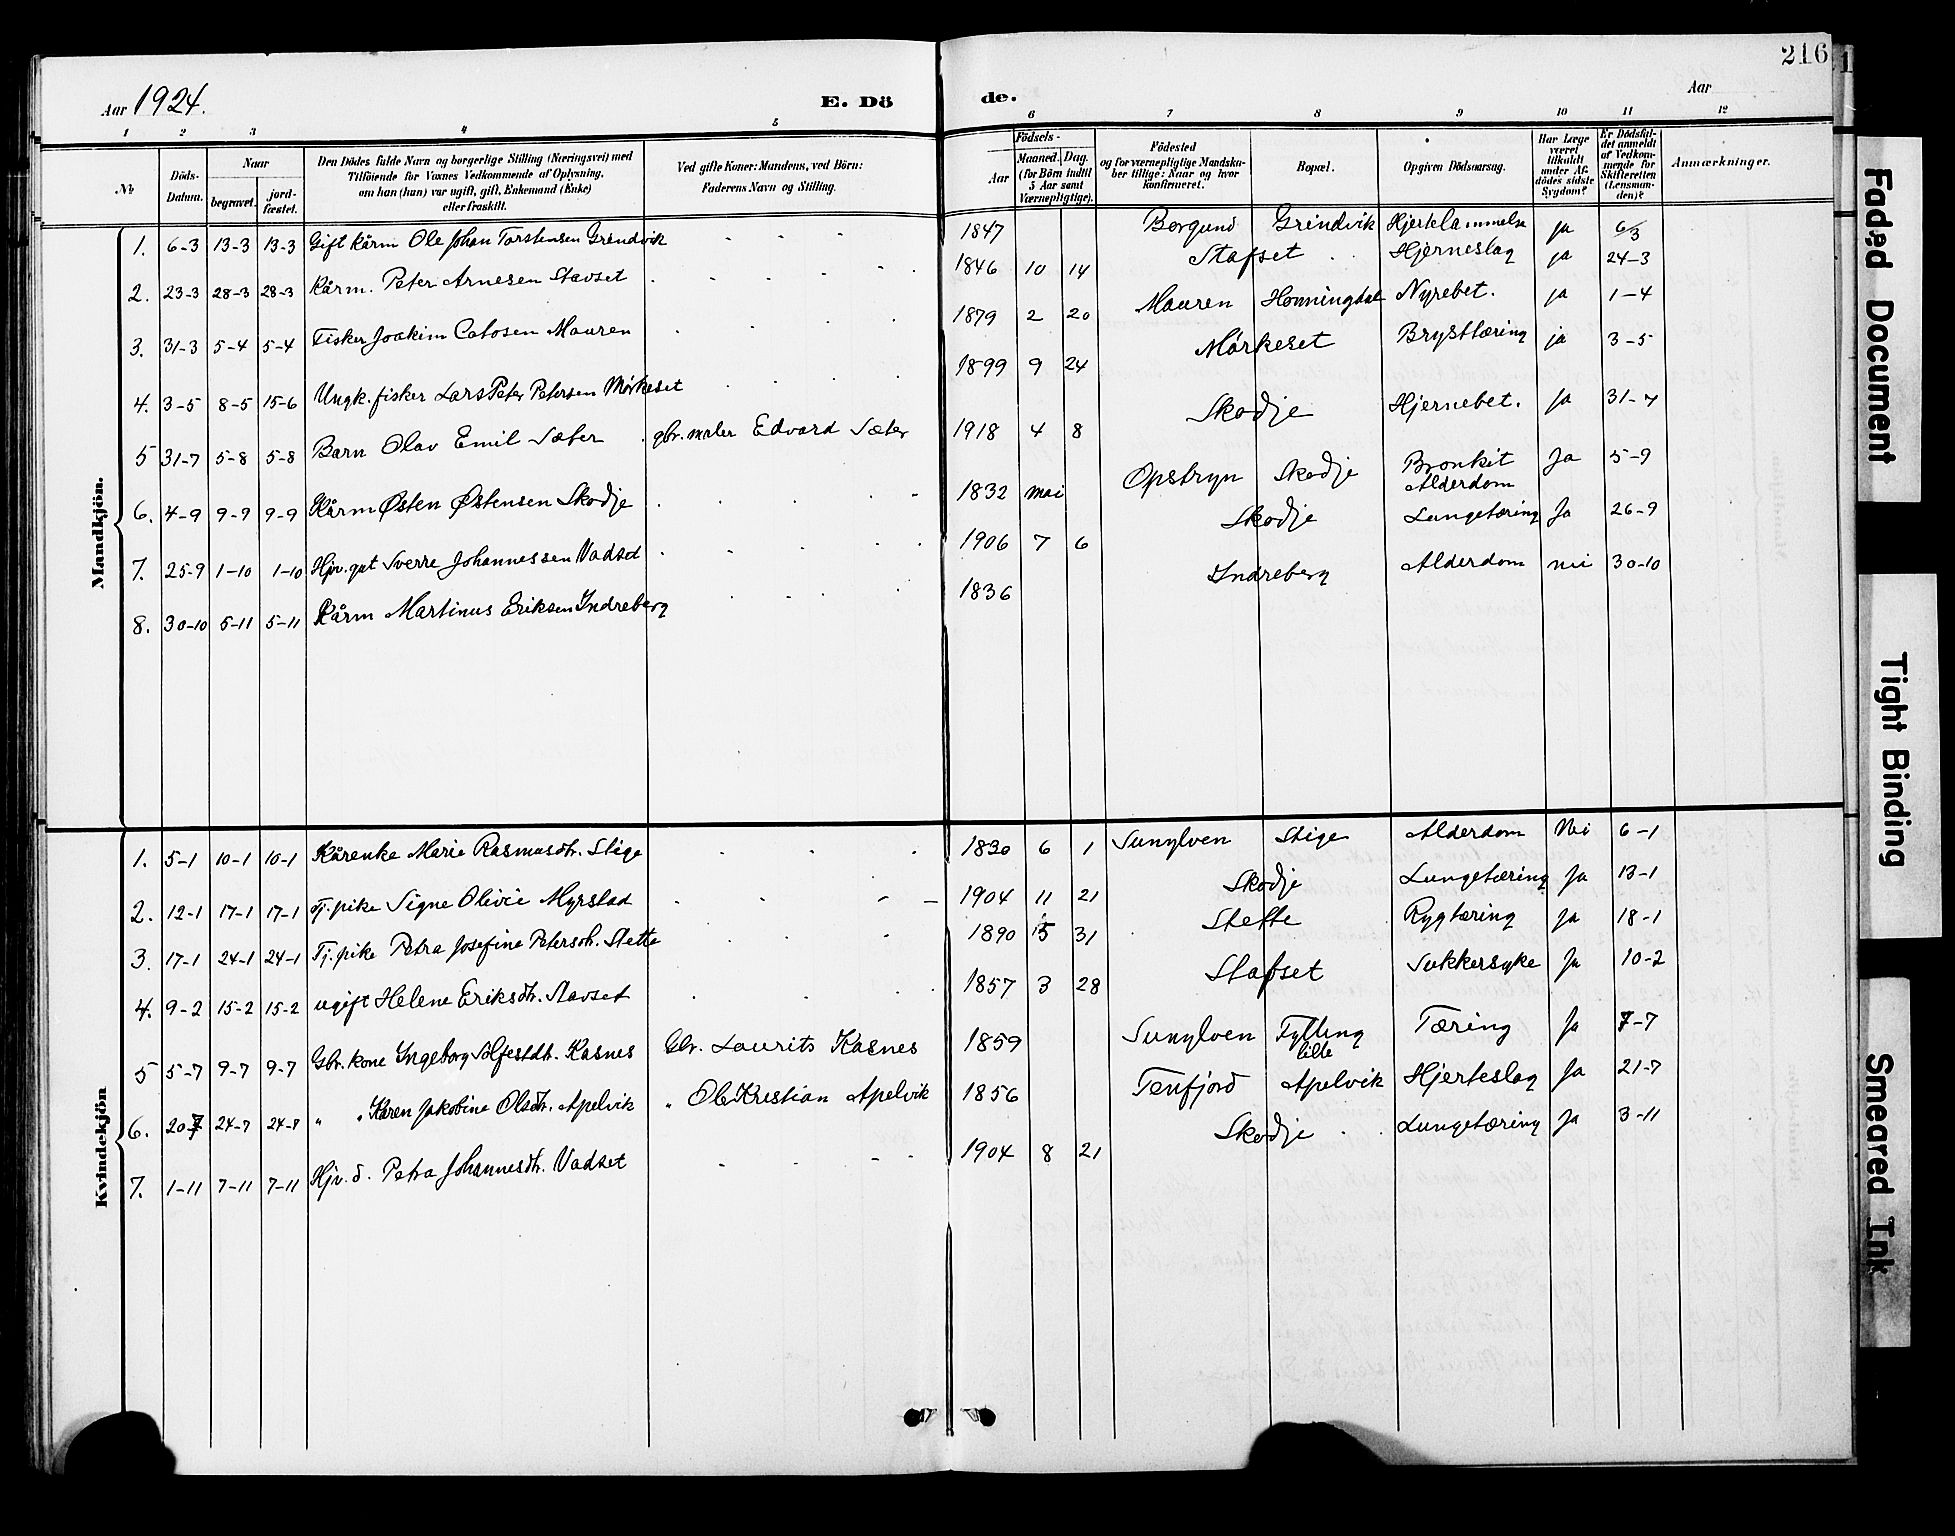 216
Aar 1924. E. Dö de. Aar
1 2 3 4 5 6 7 8 9 10 11 12
No Döds-Datum. Naar begravet. jordfæstet. Den Dödes fulde Navn og borgerlige Stilling (Næringsvei) med Tilföiende for Voxnes Vedkommende af Oplysning, om han (hun) var ugift, gift, Enkemand (Enke) eller fraskilt. Ved gifte Koner: Mandens, ved Börn: Faderens Navn og Stilling. Födsels- Aar Maaned. Dag. (for Börn indtil 5 Aar samt Værnepligtige). Födested og for værnepligtige Mandskaber tillige: Naar og hvor konfirmeret. Bopæl. Opgiven Dödsaarsag. Har Læge været tilkaldt under Afdödes sidste Sygdom? Er Dödsfaldet anmeldt af Vedkommende for Skifteretten (Lensmanden)? Anmærkninger.
Mandkjön.
1. 6-3 13-3 13-3 Gift kårm Ole Johan Torstensen Grindvik - - - 1847 Borgund Grindvik Hjertelammelse ja 6/3
2. 23-3 28-3 28-3 Kårm. Peter Arnesen Stavset - - - 1846 10 14 Stafset Hjerneslag ja 24-3
3. 31-3 5-4 5-4 Fisker Joakim Calosen Mauren 1879 2 20 Mauren Honningdal Nyrebet. ja 1-4
4. 3-5 8-5 15-6 Ungk. fisker Lars Peter Petersen Mørkeset 1899 9 24 Mørkeset Brysttæring ja 3-5
5 31-7 5-8 5-8 Barn Olav Emil Sæter gbr. maler Edvard Sæter 1918 4 8 Skodje Hjernebet. ja 31-7
6. 4-9 9-9 9-9 Kårm Østen Østensen Skodje 1832 mai Opstryn Skodje Bronkit Alderdom Ja 5-9
7. 25-9 1-10 1-10 Hjv. gut Sverre Johannessen Vadset 1906 7 6 Skodje Lungetæring Ja 26-9
8. 30-10 5-11 5-11 Kårm Martinus Eriksen Indreberg 1836 Indreberg Alderdom nei 30-10
Kvindekjön
1. 5-1 10-1 10-1 Kårenke Marie Rasmusdtr. Stige 1830 6 1 Sunylven Stige Alderdom Nei 6-1
2. 12-1 17-1 17-1 Tj. pike Signe Olivie Myrstad 1904 11 21 Skodje Lungetæring Ja 13-1
3. 17-1 24-1 24-1 Tj. pike Petra Josefine Petersdtr. Stette 1890 5 31 Stette Rygtæring ja 18-1
4. 9-2 15-2 15-2 ugift Helene Eriksdtr. Stavset 1857 3 28 Stafset Sukkersyke Ja 10-2
5 5-7 9-7 9-7 Gbr. kone Ingeborg Sølfestdtr. Kasnes Gbr. Laurits Kasnes 1859 Sunylven Fylling lille Tæring Ja 7-7
6. 20 7 24-7 24-7 " " Karen Jakobine Olsdtr. Apelvik " Ole Kristian Apelvik 1856 Tenfjord Apelvik Hjerteslag Ja 21-7
7. 1-11 7-11 7-11 Hjv. d. Petra Johannesdtr. Vadset 1904 8 21 Skodje Lungetæring Ja 3-11
Faded Document
Tight Binding
Smeared Ink